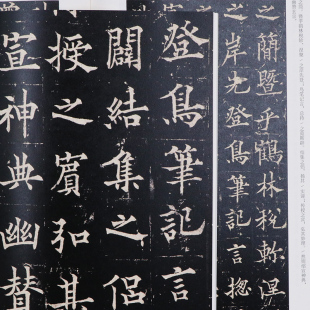 之簡暨乎鶴林稅軫涅
岸先登鳥筆記言揔
登鳥筆記言
闢結集之侶
授之賓弘其
宣神典幽賛